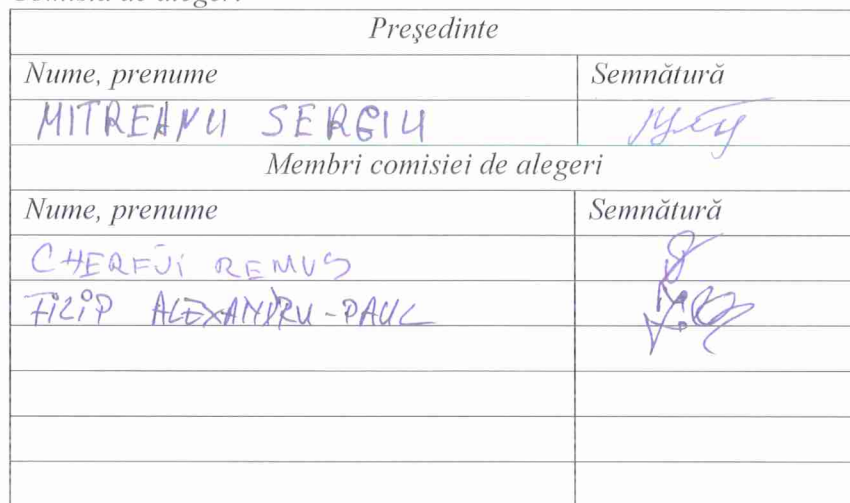 Comisia de alegeri
Președinte
Nume, prenume Semnătură
MITREANU SERGIU
Membri comisiei de alegeri
Nume, prenume Semnătură
CHEREJI REMUS
FILIP ALEXANDRU-PAUL